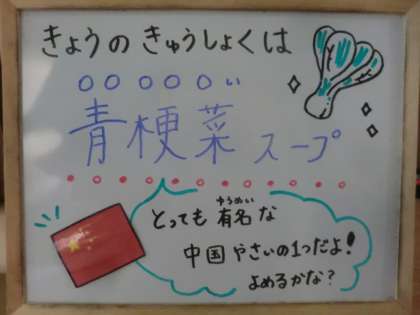 きょうの きゅうしょくは
○○○○○い
青梗菜 スープ
とっても 有名な
ゆうめい
中国 やさいの1つだよ!
よめるかな?